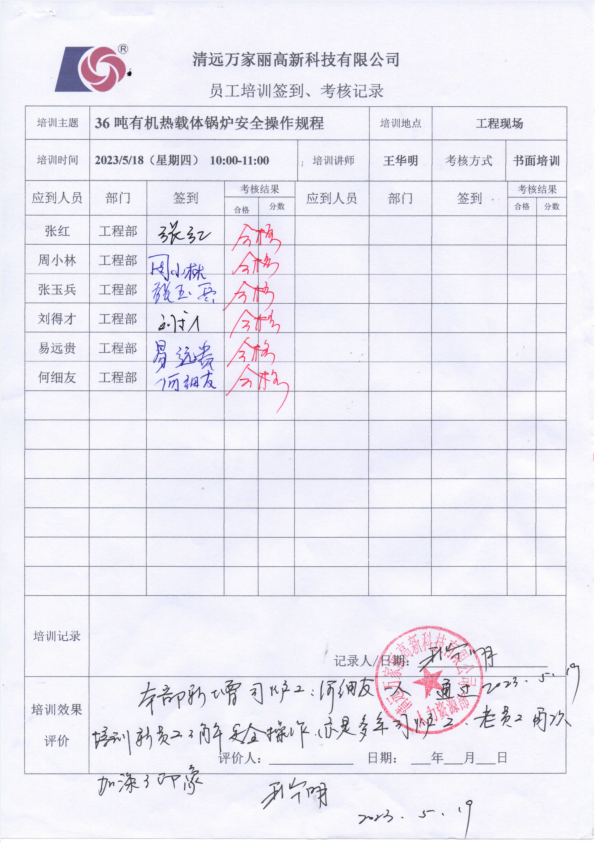 ®
清远万家丽高新科技有限公司
员工培训签到、考核记录
培训主题 36 吨有机热载体锅炉安全操作规程 培训地点 工程现场
培训时间 2023/5/18（星期四） 10:00-11:00 培训讲师 王华明 考核方式 书面培训
应到人员 部门 签到 考核结果 应到人员 部门 签到 考核结果
合格 分数 合格 分数
张红 工程部 张红 合格
周小林 工程部 周小林 合格
张玉兵 工程部 张玉兵 合格
刘得才 工程部 合格
易远贵 工程部 易远贵 合格
何细友 工程部 何细友 合格
培训记录
记录人/日期:
2023.5.19
本部新增司炉工:何细友一人 通过
培训效果
评价
培训新员工了解安全操作,亦是多年司炉工.老员工再次
评价人: 日期: 年 月 日
加深了印象
2023.5.19
清远万家丽高新科技有限公司
人力资源部